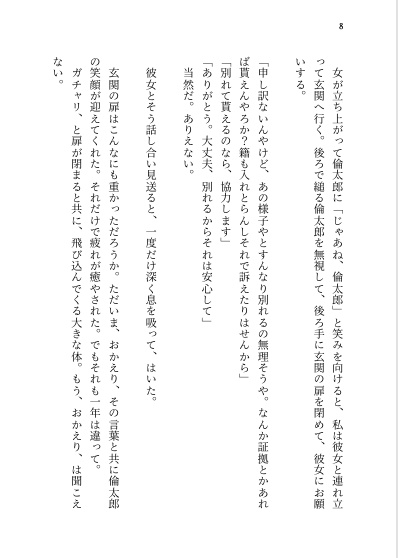 8
女が立ち上がって倫太郎に「じゃあね、倫太郎」と笑みを向けると、私は彼女と連れ立
って玄関へ行く。後ろで縋る倫太郎を無視して、後ろ手に玄関の扉を閉めて、彼女にお願
いする。
「申し訳ないんやけど、あの様子やとすんなり別れるの無理そうや。なんか証拠とかあれ
ば貰えんやろか？籍も入れとらんしそれで訴えたりはせんから」
「別れて貰えるのなら、協力します」
「ありがとう。大丈夫、別れるからそれは安心して」
当然だ。ありえない。
彼女とそう話し合い見送ると、一度だけ深く息を吸って、はいた。
玄関の扉はこんなにも重かっただろうか。ただいま、おかえり、その言葉と共に倫太郎
の笑顔が迎えてくれた。それだけで疲れが癒やされた。でもそれも一年は違って。
ガチャリ、と扉が閉まると共に、飛び込んでくる大きな体。もう、おかえり、は聞こえ
ない。